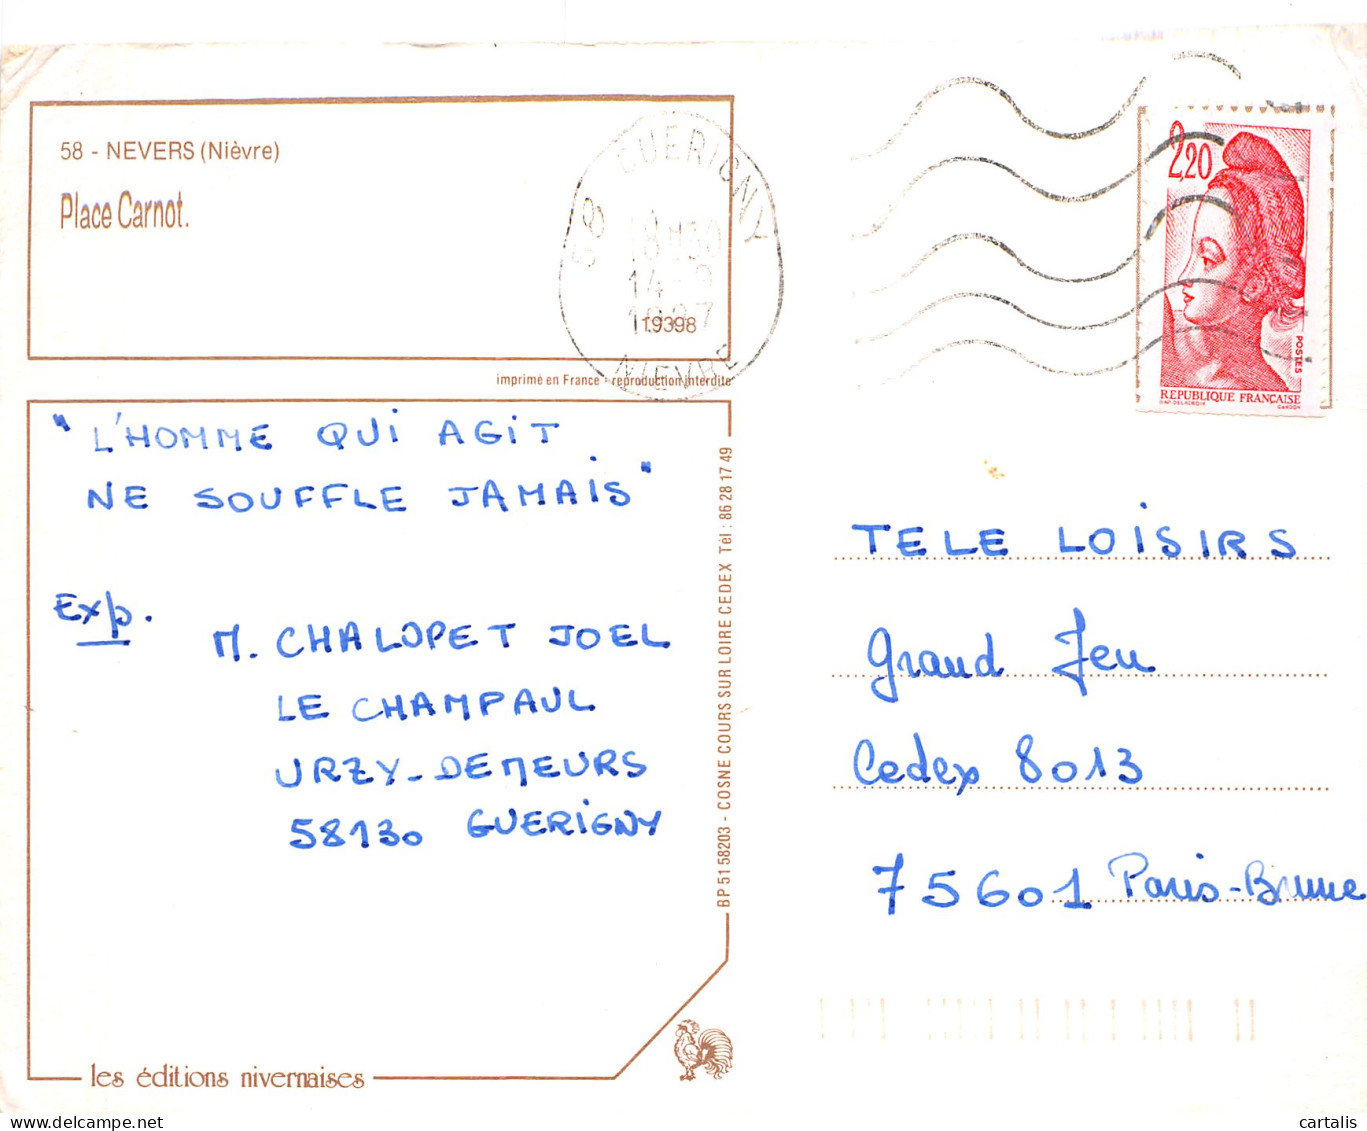 58 - NEVERS (Nièvre)
Place Carnot.
19398
imprimé en France - reproduction interdite
58 GUERIGNY
18H30
14-9
1987
NIEVRE
2,20
POSTES
REPUBLIQUE FRANÇAISE
D'AP. DELACROIX GANDON
"L'HOMME QUi AGiT
NE SOUFFLE JAMAiS"
Exp.
M. CHALOPET JOEL
LE CHAMPAUL
URZY-DEMEURS
58130 GUERiGNY
BP 51 58203 - COSNE COURS SUR LOIRE CEDEX Tél : 86 28 17 49
TELE LOiSiRS
Grand Jeu
Cedex 8013
75601 Paris-Brune
les éditions nivernaises
delcampe.net
cartalis